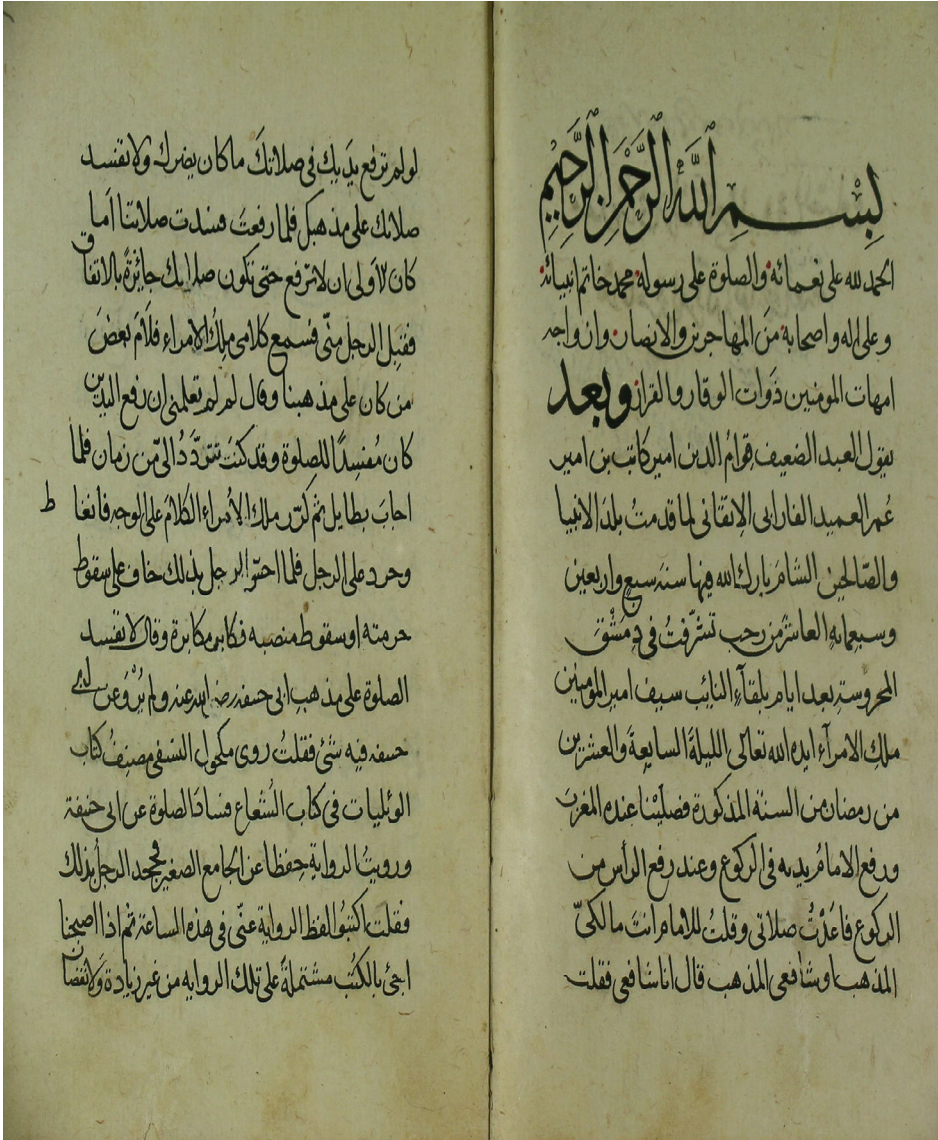 بِسْمِ اللّٰهِ الرَّحْمٰنِ الرَّحِيْمِ
الحمد لله على نعمائه والصلوة على رسوله محمد خاتم انبيائه
وعلى اله واصحابه منَ المهاجرين والانصار وازواجه
امهات المومنين ذَوات الوقار والقرار وبعد
يقول العبد الضعيف قِوامُ الدين امير كاتب بن امير
عُمر العميد الفارابى الاِتقانى لما قدمتُ بلدَ الانبيا
والصّالحين الشامَ بارك الله فيها سنة سبعٍ واربعين
وسبعمايه العاشرَ من رجب تشرّفتُ فى دِمشْقِ
المحروسةِ بعد ايام بلقاءِ النائب سيف امير المومنين
ملكِ الامرآء ايده الله تعالى الليلةَ السابعةَ والعشرين
من رمضان من السنة المذكورة فصلّيْنا عنده المغربَ
ورفع الامامُ يديه فى الركوع وعند رفع الرأس من
الركوع فاعَدْتُ صلاتى وقلتُ للامام انتَ مالكىّ
المذهب او شافعى المذهب قال انا شافعى فقلت
لو لم ترفع يدَيك فى صلاتكَ ما كان يضرك ولا تفسد
صلاتك على مذهبك فلما رفعتَ فسدت صلاتنا اَما
كان الاَولى ان لا ترفع حتى تكون صلاتك جائزةً بالاتفاق
فقبِل الرجل منّى فسمع كلامى ملِكُ الامراء فلَامَ بعضَ
من كان على مذهبنا وقال لم لم تعلمنى ان رفع اليدين
كان مُفسِدًا للصلوة وقد كنتَ تتردَّدُ الىّ من زمان فلما
اجابَ بطايل ثم كرّر ملك الاُمراء الكلامَ على الوجه فانغاظ
وحرد على الرجل فلما احسّ الرجل بذلك خاف على سقوط
حرمته او سقوط منصبه فكابر مكابرة وقال لا تفسد
الصلوة على مذهب ابى حنيفه رضى الله عنه ولم يُرْوَ عن ابى
حنيفه فيه شئ فقلتُ روى مكحول النسفى مصنِفُ كتاب
اللؤلئيات فى كتاب الشُعاع فسادَ الصلوة عن ابى حنيفة
ورويتُ الروايةَ حِفظًا عن الجامع الصغير فجحد الرجل بذلك
فقلت اكتبُوا لفظ الرواية عنّى فى هذه الساعة ثم اذا اصبحنا
اجئ بالكُتب مشتملةً على تلك الروايه من غير زيادة ولا نقصان